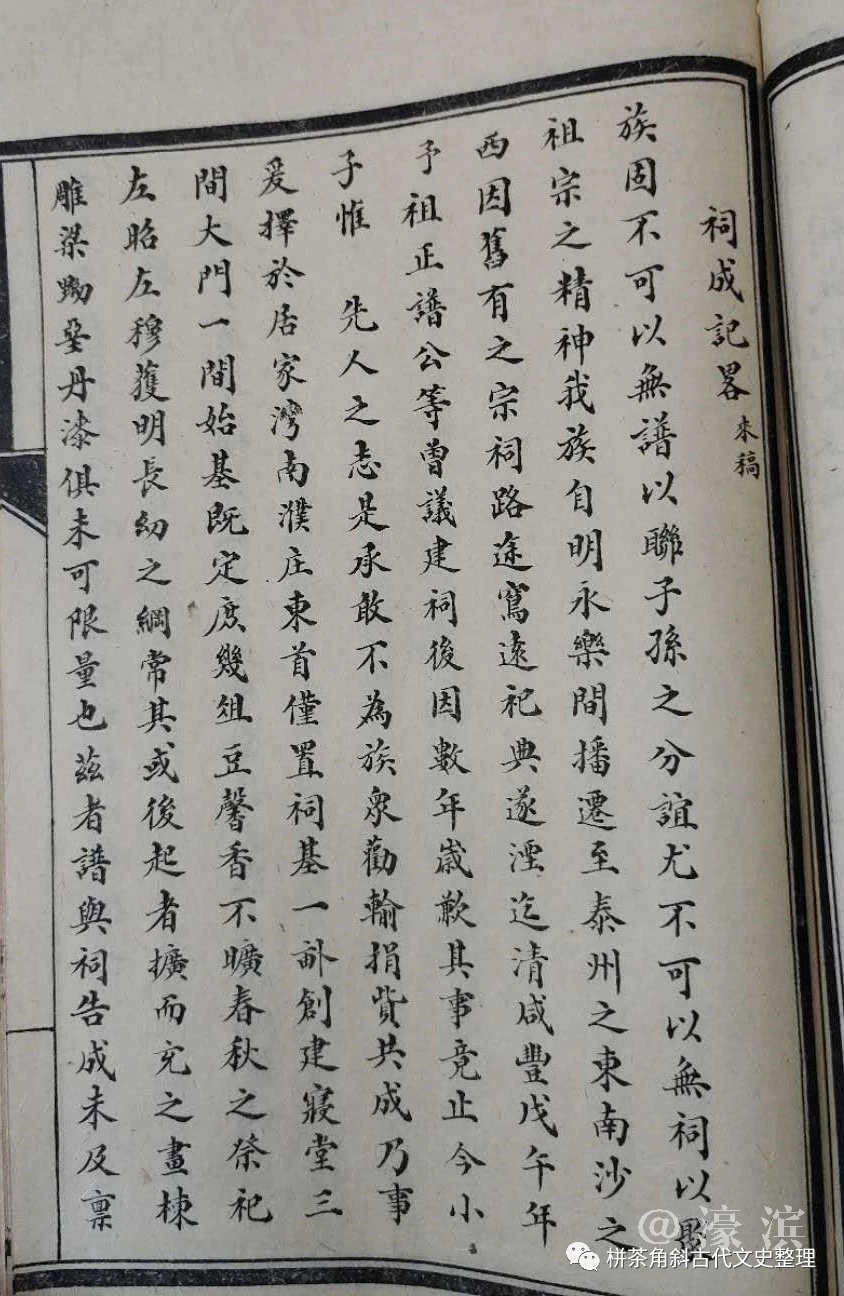 祠成記畧 來稿
族固不可以無譜以聯子孫之分誼尤不可以無祠以聚
祖宗之精神我族自明永樂間播遷至泰州之東南沙之
西因舊有之宗祠路途窵遠祀典遂湮迄清咸豐戊午年
予祖正譜公等曾議建祠後因數年歲歉其事竟止今小
子惟 先人之志是承敢不為族衆勸輸捐貲共成乃事
爰擇於居家灣南濮庄東首僅置祠基一畝創建寢堂三
間大門一間始基既定庶幾俎豆馨香不曠春秋之祭祀
左昭左穆蒦明長幼之綱常其或後起者擴而充之畫棟
雕梁黝堊丹漆俱未可限量也茲者譜與祠告成未及稟
@濠滨
栟茶角斜古代文史整理